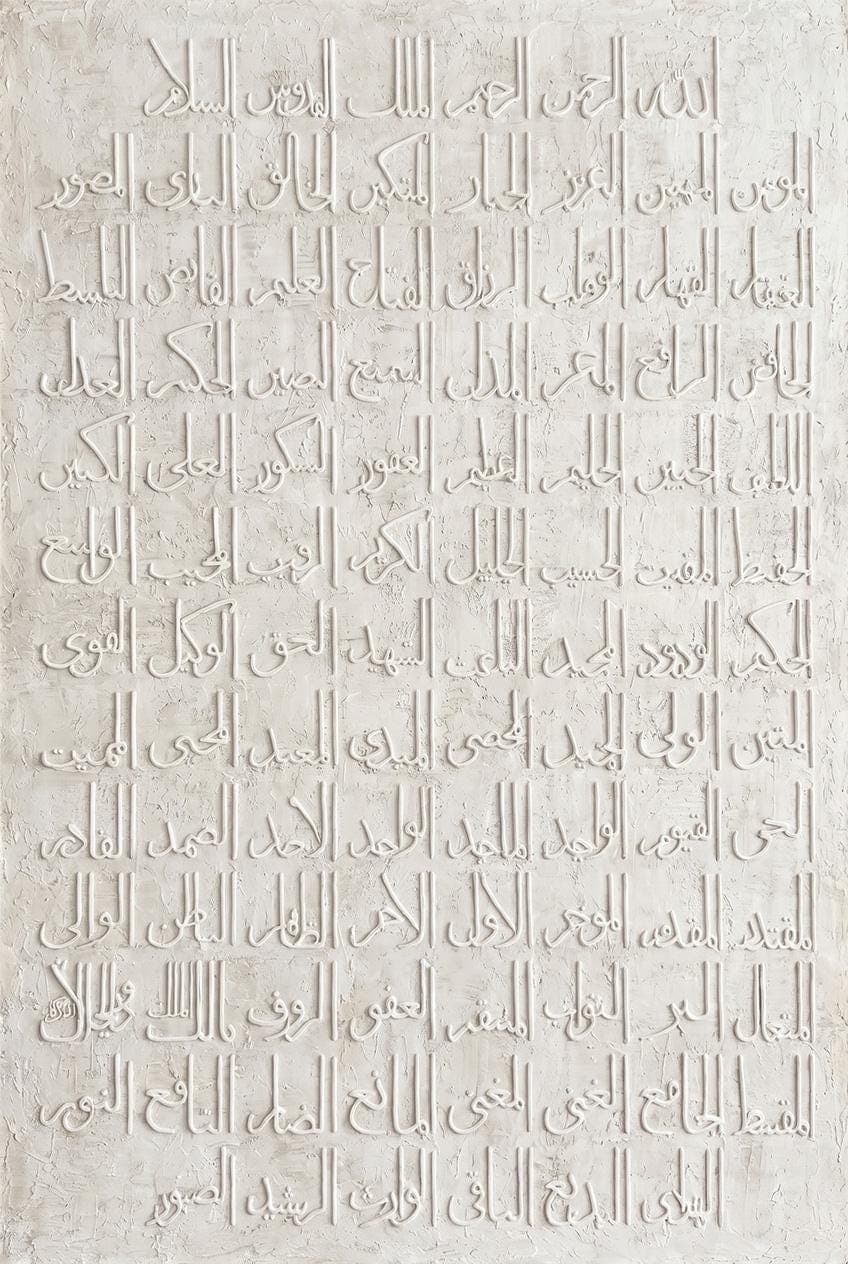 الله الرحمن الرحيم الملك القدوس السلام
المومن المهيمن العزيز الجبار المتكبر الخالق البارى المصور
الغفار القهار الوهاب الرزاق الفتاح العليم القابض الباسط
الخافض الرافع المعز المذل السميع البصير الحكم العدل
اللطيف الخبير الحليم العظيم الغفور الشكور العلى الكبير
الحفيظ المقيت الحسيب الجليل الكريم الرقيب المجيب الواسع
الحكيم الودود المجيد الباعث الشهيد الحق الوكيل القوى
المتين الولى الحميد المحصى المبدى المعيد المحيى المميت
الحى القيوم الواجد الماجد الواحد الاحد الصمد القادر
المقتدر المقدم الموخر الاول الاخر الظاهر الباطن الوالى
المتعال البر التواب المنتقم العفو الروف مالك الملك ذو الجلال والاكرام
المقسط الجامع الغنى المغنى المانع الضار النافع النور
الهادى البديع الباقى الوارث الرشيد الصبور